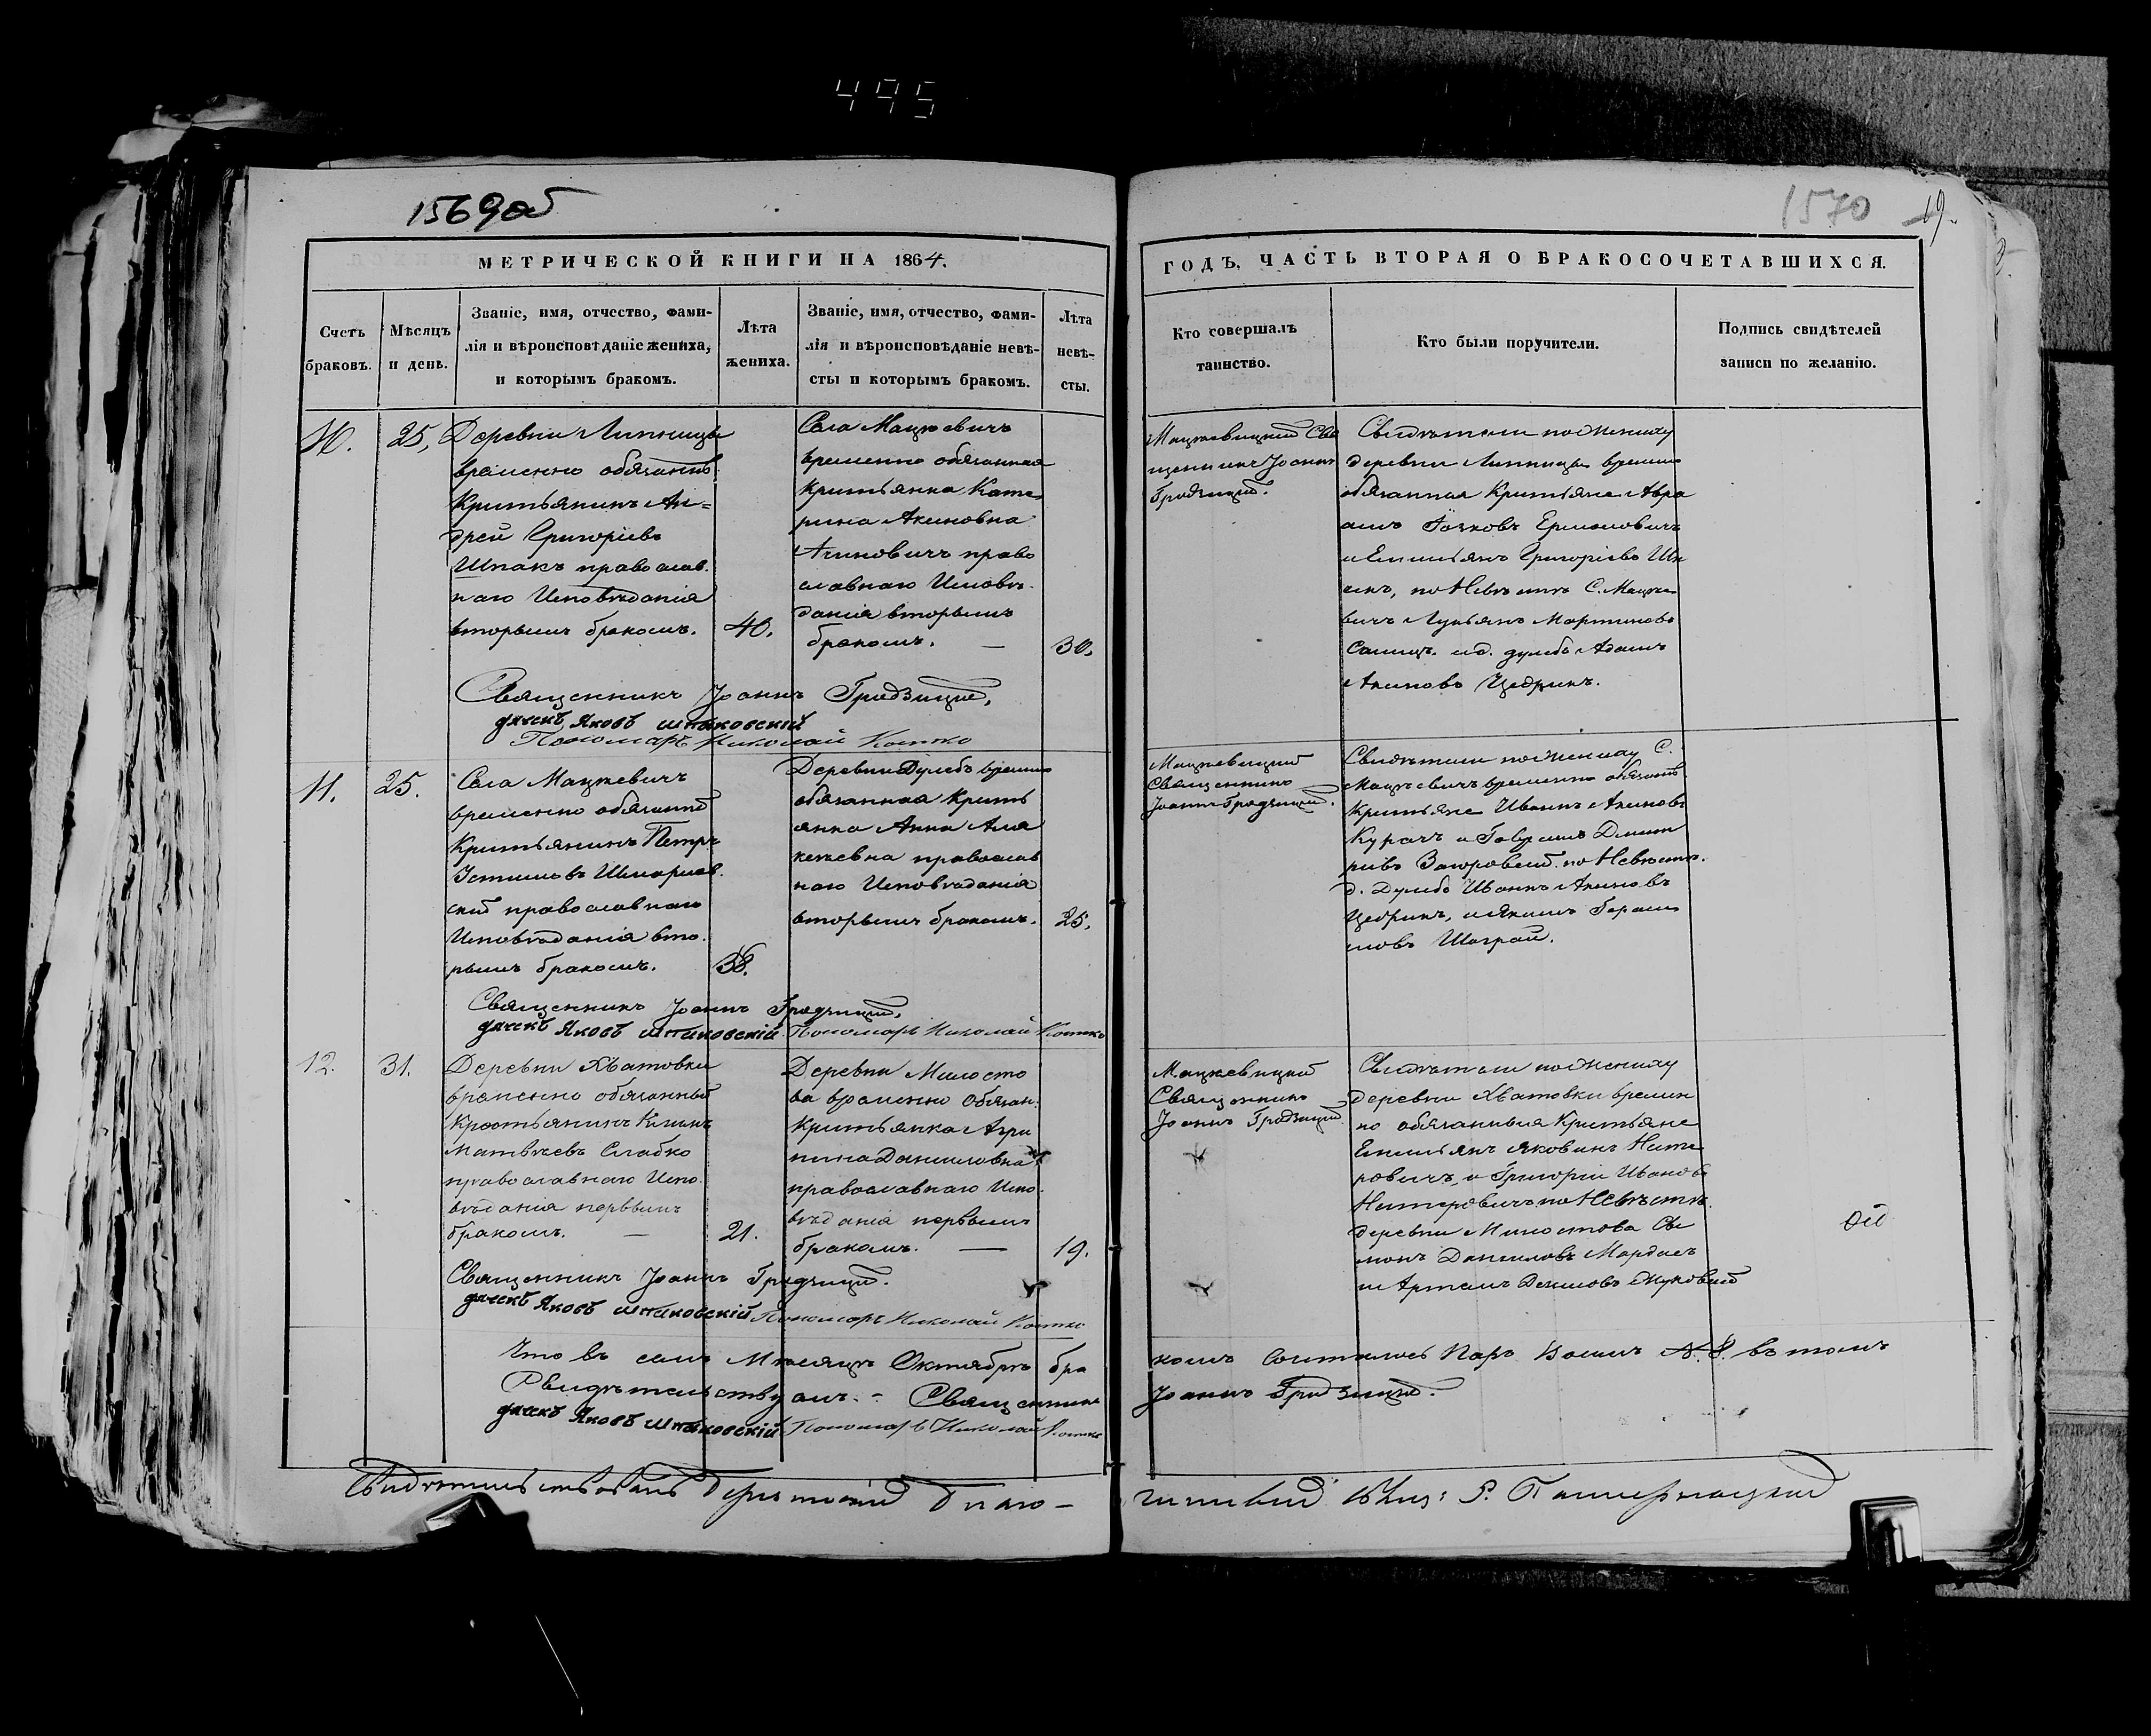 495
1569об
1570
19.
МЕТРИЧЕСКОЙ КНИГИ НА 1864.
ГОДЪ, ЧАСТЬ ВТОРАЯ О БРАКОСОЧЕТАВШИХСЯ.
Счетъ
браковъ.
Мѣсяцъ
и день.
Званіе, имя, отчество, фами-
лія и вѣроисповѣданіе жениха,
и которымъ бракомъ.
Лѣта
жениха.
Званіе, имя, отчество, фами-
лія и вѣроисповѣданіе невѣ-
сты и которымъ бракомъ.
Лѣта
невѣ-
сты.
Кто совершалъ
таинство.
Кто были поручители.
Подпись свидѣтелей
записи по желанію.
10.
25,
Деревни Липницы
временно обязанный
Крестьянинъ Ан=
дрей Григоріевъ
Шпакъ православ.
наго Исповѣданія
вторымъ бракомъ.
40.
Села Мацкевичъ
временно обязанная
Крестьянка Кате
рина Акиновна
православнаго Исповѣ.
данія вторымъ
бракомъ. —
30.
Мацкевицкій Свя
щенникъ Іоаннъ
Гродзицкій.
Свидѣтели по Жениху
деревни Липницы времено
обязанныя Крестьяне Авра
амъ Ермоловичъ
и Емильянъ Григоріевъ Шп
акъ, по Невѣстѣ С. Мацке
вичъ Лукьянъ Мартиновъ
и д. дулебъ Адамъ
Акимовъ Цебрикъ.
Священникъ Іоаннъ Гродзицкій,
дячекъ Яковъ шпаковскій
Пономарь Николай Костко
11.
25.
Села Мацкевичъ
временно обязанный
Крестьянинъ Петръ
Устиновъ
скій православнаго
Исповѣданія вто.
рымъ бракомъ.
38.
Деревни Дулебъ времено
обязанная Кресть
янка Анна
православ
наго Исповѣданія
вторымъ бракомъ.
25.
Мацкевицкій
Священникъ
Іоаннъ Гродзицкій.
Свидѣтели по Жениху С.
Мацкевичъ временно обязанный
Крестьяне Иванъ Акимовъ
Курачъ и Дмит
ріевъ по Невѣстѣ.
д. Дулебъ Иванъ Акимовъ
Цебрикъ, и Якимъ Гераси
мовъ
Священникъ Іоаннъ Гродзицкій,
дячекъ Яковъ шпаковскій Пономарь Николай Костко
12.
31.
Деревни Хватовки
временно обязанный
Крестьянинъ
Матвѣевъ Слабко
православнаго Испо.
вѣданія первымъ
бракомъ. —
21.
Деревни Милосто
ва временно обязан.
Крестьянка Агри
пина Даниловна
православнаго Испо.
вѣданія первымъ
бракомъ. —
19.
Мацкевицкій
Священникъ
Іоаннъ Гродзицкій
Свидѣтели по Жениху
деревни Хватовки времен
но обязанныя Крестьяне
Емильянъ Яковинъ Несте
ровичъ, и Григорій Ивановъ
Нестеровичъ по Невѣстѣ.
деревни Милостова Се
монъ Даниловъ
и Артемъ Денисовъ Жуковскій
Священникъ Іоаннъ Гродзицкій.
дячекъ Яковъ шпаковскій Пономарь Николай Костко
Что въ семъ Мѣсяцѣ Октябрѣ бра
комъ сочиталось Паръ восемь N. 8. въ томъ
Свидѣтельствуемъ. - Священникъ
Іоаннъ Гродзицкій.
дячекъ Яковъ шпаковскій Пономарь Николай Костко
Свидѣтельствовалъ